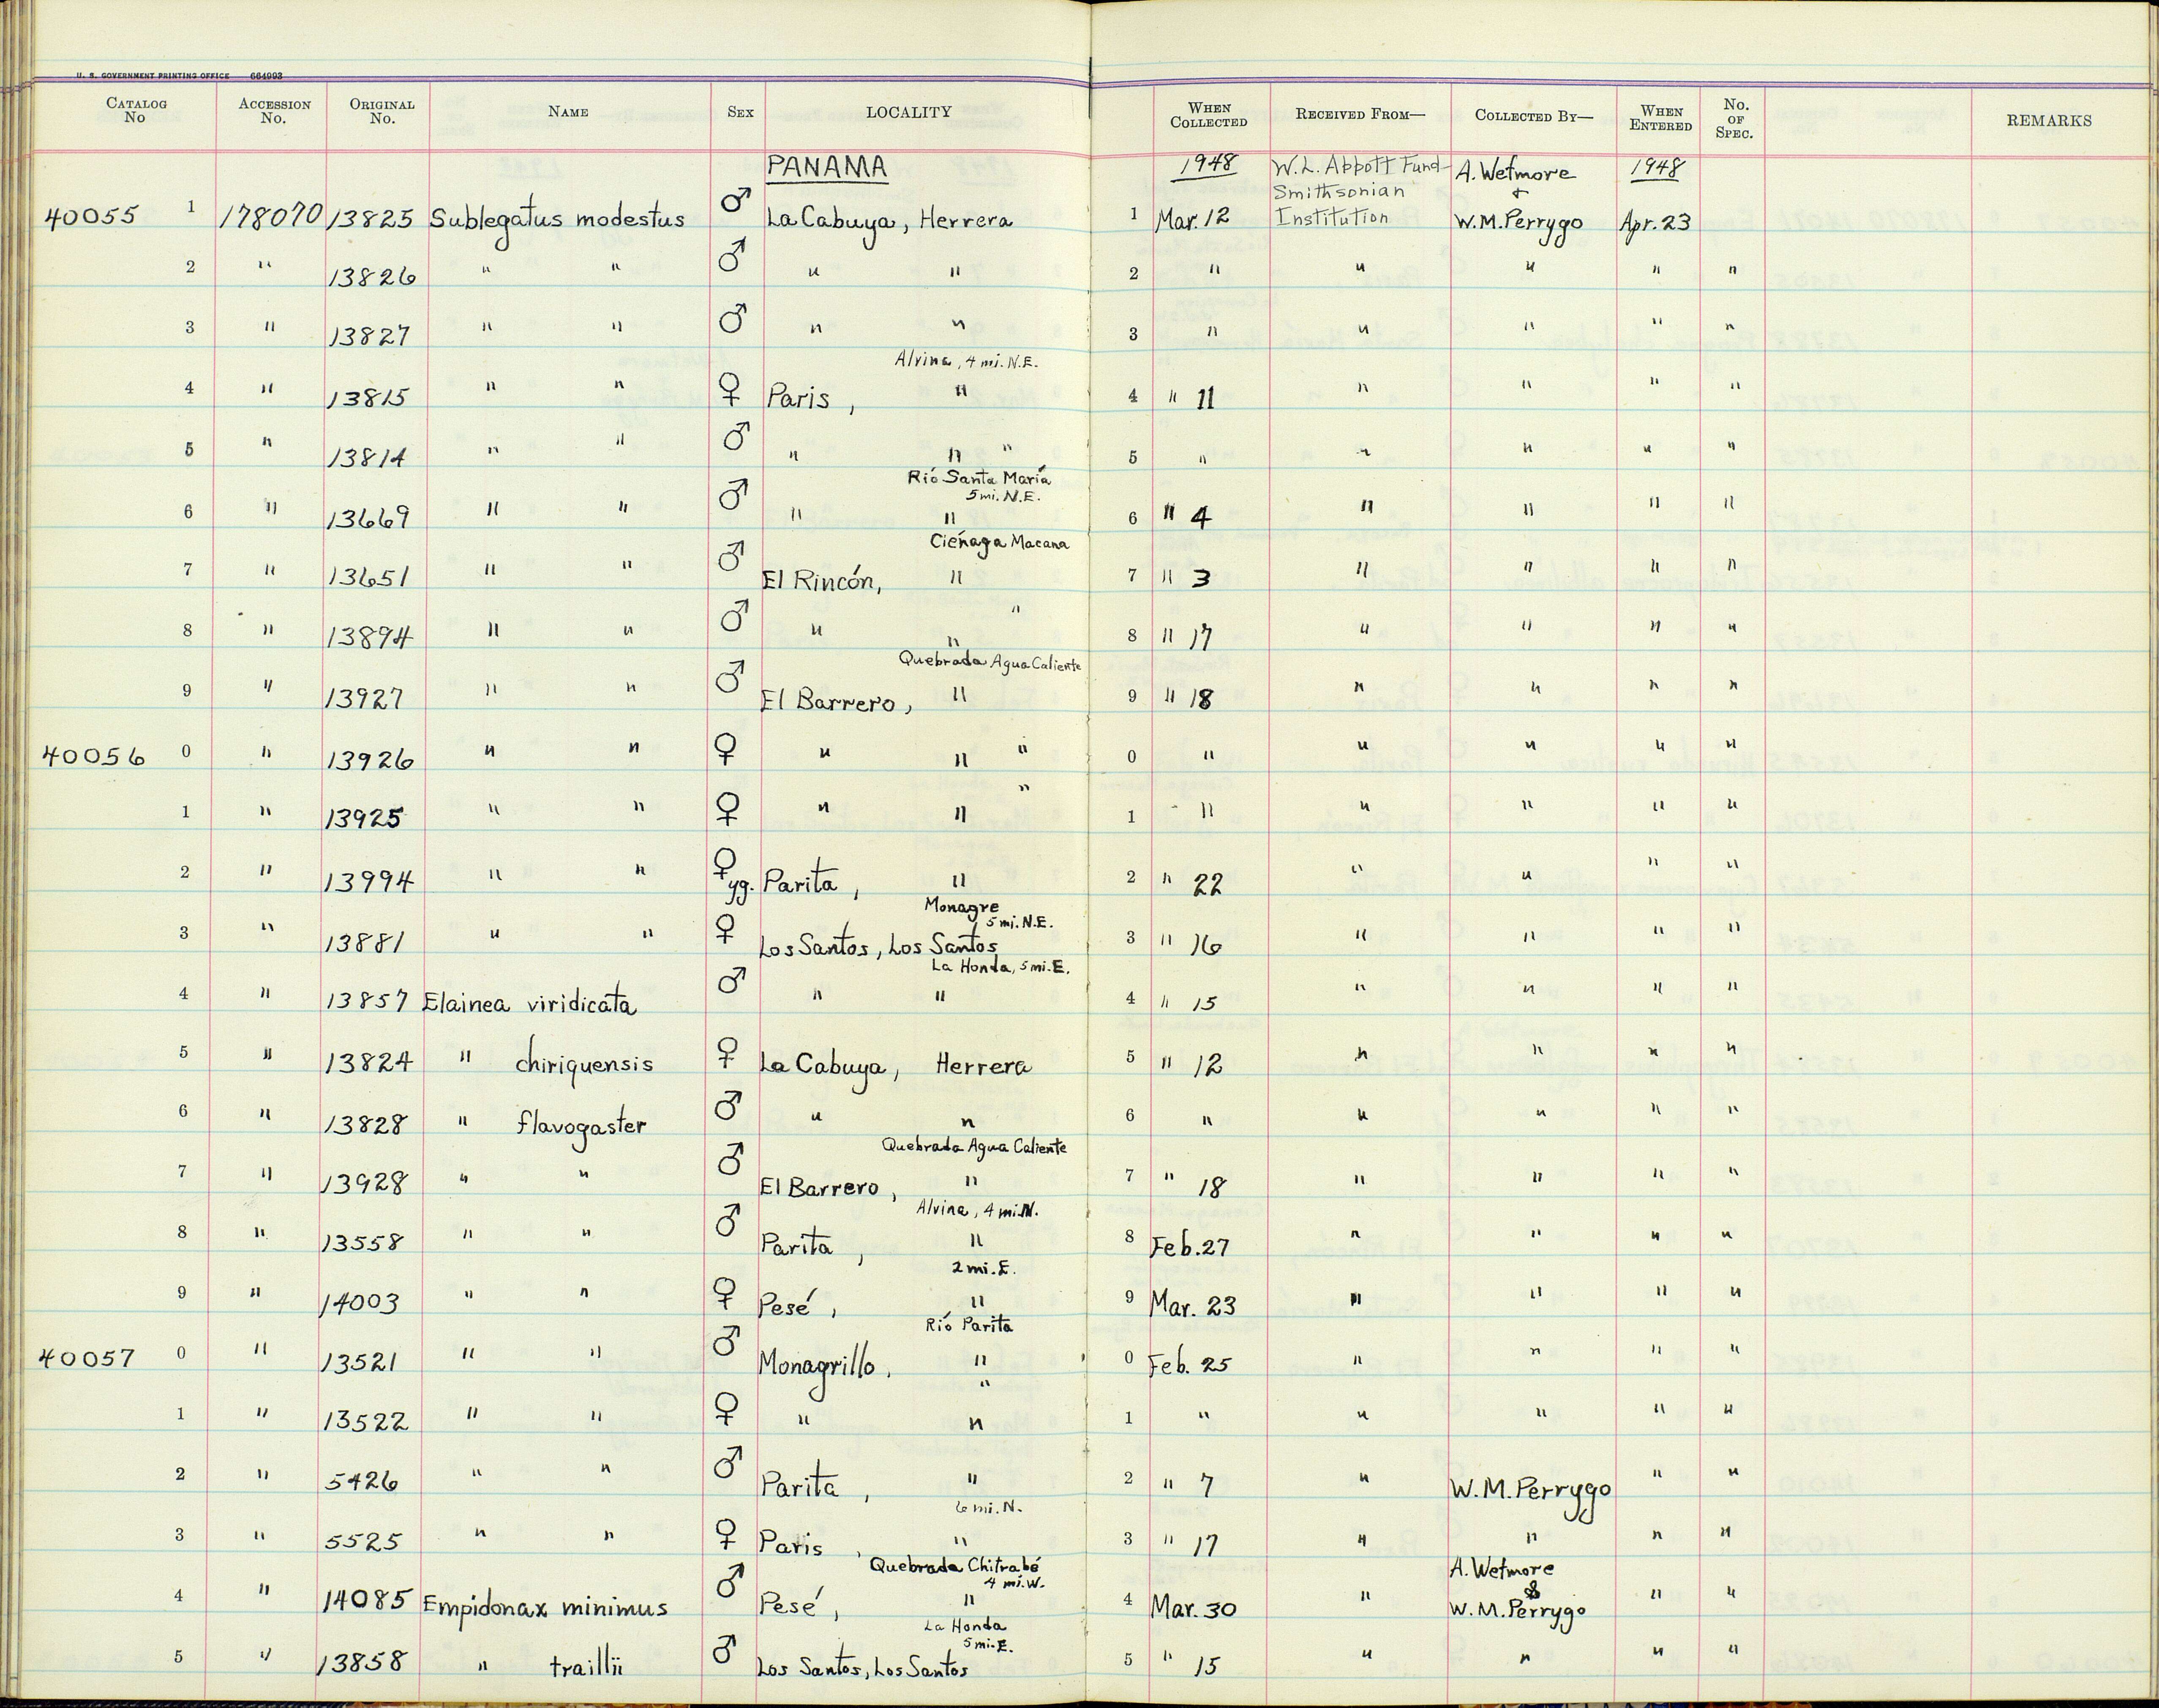 U. S. GOVERNMENT PRINTING OFFICE 664993
CATALOG No ACCESSION No. ORIGINAL No. NAME SEX LOCALITY WHEN COLLECTED RECEIVED FROM— COLLECTED BY— WHEN ENTERED No. OF SPEC. REMARKS
PANAMA 1948 W.L. Abbott Fund A. Wetmore 1948
Smithsonian &
40055 1 178070 13825 Sublegatus modestus ♂ La Cabuya, Herrera 1 Mar. 12 Institution W.M. Perrygo Apr. 23
2 " 13826 " " ♂ " " 2 " " " " "
3 " 13827 " " ♂ " " 3 " " " " "
Alvina, 4 mi. N.E.
4 " 13815 " " ♀ Paris, " 4 " 11 " " " "
5 " 13814 " " ♂ " " " 5 " " " " "
Río Santa María
5 mi. N.E.
6 " 13669 " " ♂ " " 6 " 4 " " " "
Ciénaga Macana
7 " 13651 " " ♂ El Rincón, " 7 " 3 " " " "
"
8 " 13894 " " ♂ " " 8 " 17 " " " "
Quebrada Agua Caliente
9 " 13927 " " ♂ El Barrero, " 9 " 18 " " " "
40056 0 " 13926 " " ♀ " " " 0 " " " " "
"
1 " 13925 " " ♀ " " 1 " " " " "
2 " 13994 " " ♀ yg. Parita, " 2 " 22 " " " "
Monagre
5 mi. N.E.
3 " 13881 " " ♀ Los Santos, Los Santos 3 " 16 " " " "
La Honda, 5 mi. E.
4 " 13857 Elainea viridicata ♂ " " 4 " 15 " " " "
5 " 13824 " chiriquensis ♀ La Cabuya, Herrera 5 " 12 " " " "
6 " 13828 " flavogaster ♂ " " 6 " " " " "
Quebrada Agua Caliente
7 " 13928 " " ♂ El Barrero, " 7 " 18 " " " "
Alvina, 4 mi. N.
8 " 13558 " " ♂ Parita, " 8 Feb. 27 " " " "
2 mi. E.
9 " 14003 " " ♀ Pesé, " 9 Mar. 23 " " " "
Río Parita
40057 0 " 13521 " " ♂ Monagrillo, " 0 Feb. 25 " " " "
"
1 " 13522 " " ♀ " " 1 " " " " "
2 " 5426 " " ♂ Parita, " 2 " 7 " W. M. Perrygo " "
6 mi. N.
3 " 5525 " " ♀ Paris, " 3 " 17 " " " "
Quebrada Chitrabé A. Wetmore
4 mi. W. &
4 " 14085 Empidonax minimus ♂ Pesé, " 4 Mar. 30 " W. M. Perrygo " "
La Honda
5 mi. E.
5 " 13858 " traillii ♂ Los Santos, Los Santos 5 " 15 " " " "